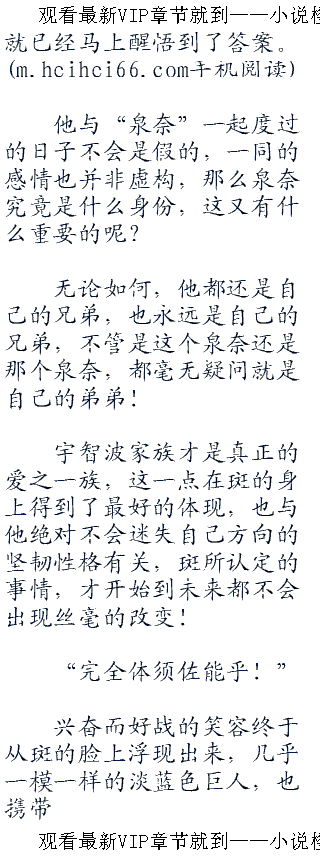 观看最新VIP章节就到——小说检
就已经马上醒悟到了答案。
(m.hcihci66.com手机阅读)
他与“泉奈”一起度过
的日子不会是假的，一同的
感情也并非虚构，那么泉奈
究竟是什么身份，这又有什
么重要的呢？
无论如何，他都还是自
己的兄弟，也永远是自己的
兄弟，不管是这个泉奈还是
那个泉奈，都毫无疑问就是
自己的弟弟！
宇智波家族才是真正的
爱之一族，这一点在斑的身
上得到了最好的体现，也与
他绝对不会迷失自己方向的
坚韧性格有关，斑所认定的
事情，才开始到未来都不会
出现丝毫的改变！
“完全体须佐能乎！”
兴奋而好战的笑容终于
从斑的脸上浮现出来，几乎
一模一样的淡蓝色巨人，也
携带
观看最新VIP章节就到——小说检